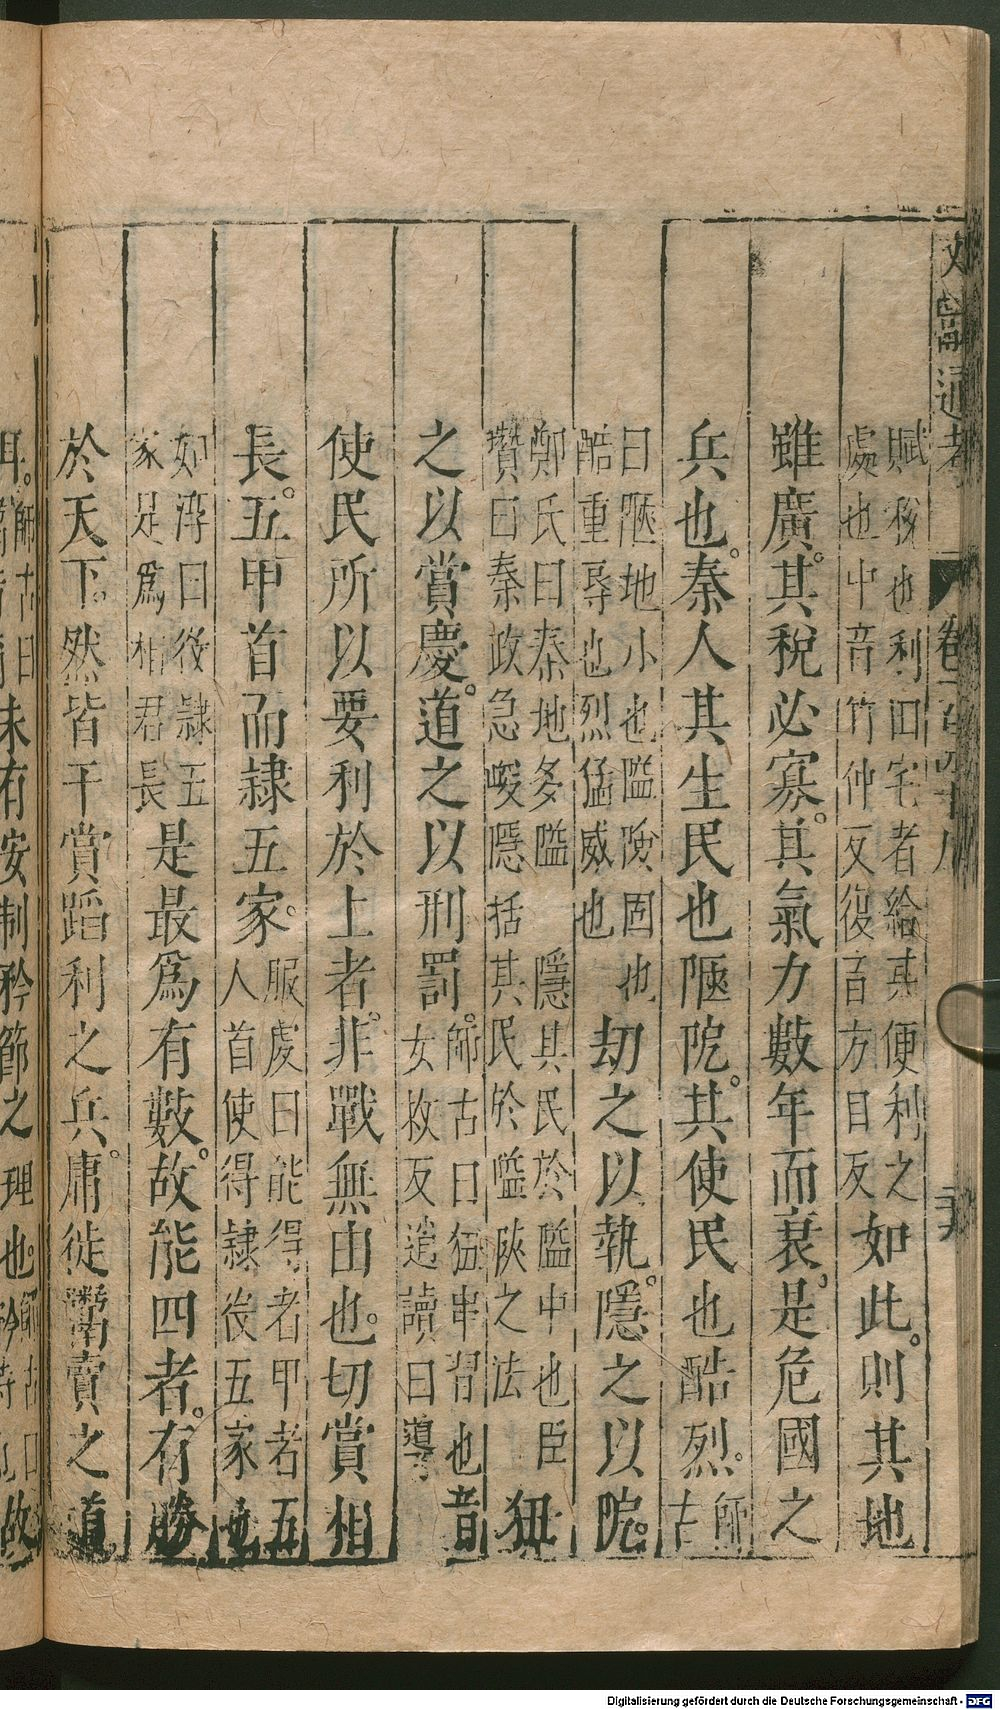 文獻通考 卷一百四十九
賦稅也利田宅者給其便利之
處也中音竹仲反復音方目反
如此。則其地
雖廣。其稅必寡。其氣力數年而衰。是危國之
兵也。秦人其生民也陿阸。其使民也酷烈。師
古
曰陿地小也隘險固也
酷重辱也烈猛威也
劫之以執。隱之以阸。
鄭氏曰秦地多隘隱其民於隘中也臣
瓚曰秦政急峻隱括其民於隘陜之法
狃
之以賞慶。道之以刑罰。師古曰狃串習也音
女救反道讀曰導
使民所以要利於上者。非戰無由也。功賞相
長。五甲首而隸五家。服虔曰能得者甲者五
人首使得隸役五家也
如淳曰役隸五
家是爲相君長
是最爲有數。故能四者。有勝
於天下。然皆干賞蹈利之兵。庸徒鬻賣之道
耳。師古曰
未有安制矜節之理也。師古曰
故
Digitalisierung gefördert durch die Deutsche Forschungsgemeinschaft - DFG